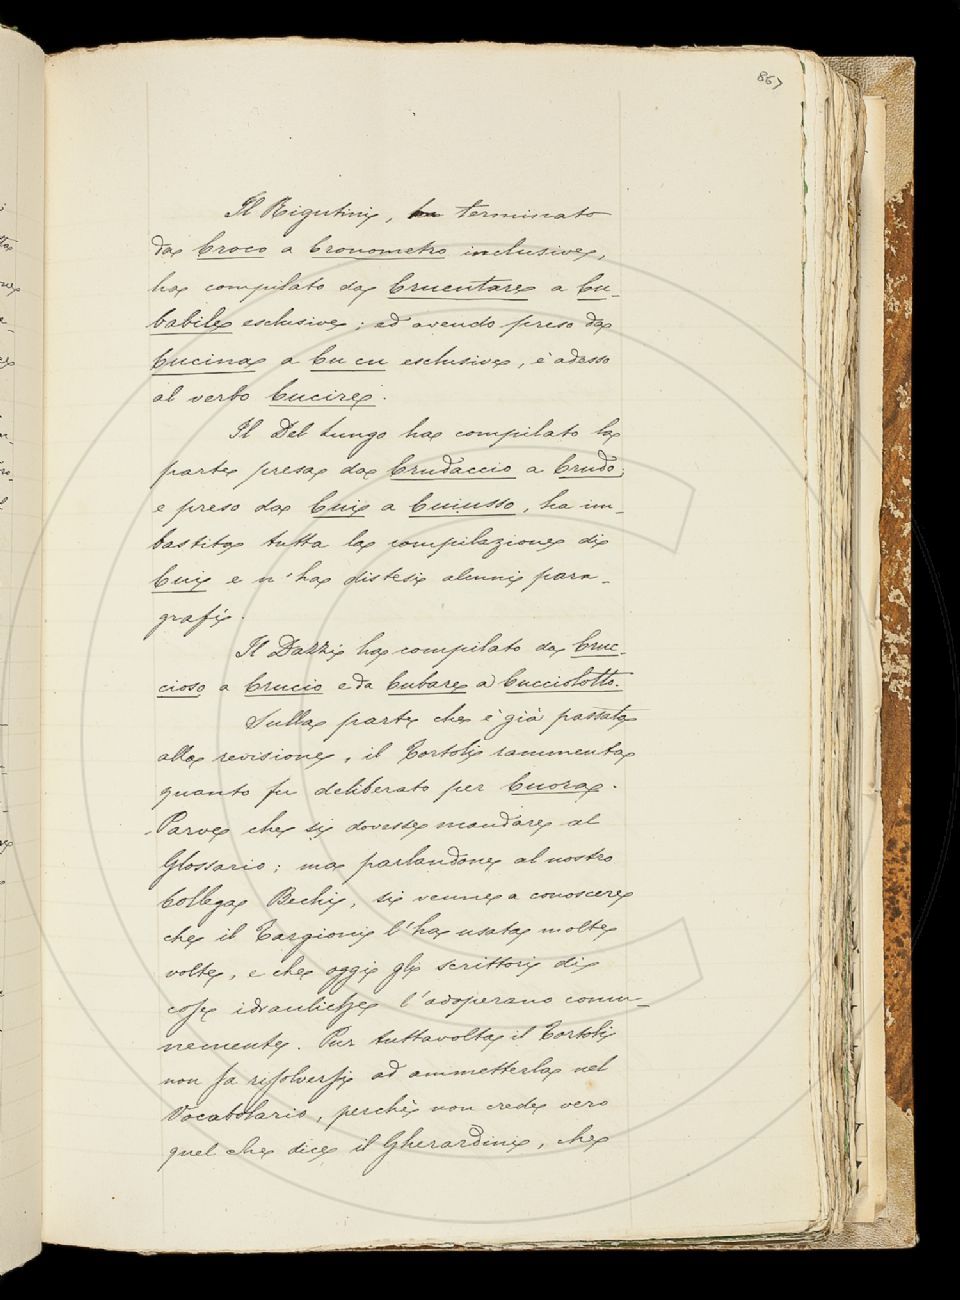 867
Il Rigutini, ha terminato
da Croco a Cronometro inclusive,
ha compilato da Cruentare a Cu-
babile esclusive; ed avendo preso da
Cucina a Cu cu esclusive, è adesso
al verbo Cucire.
Il Del Lungo ha compilato la
parte presa da Crudaccio a Crudo;
e preso da Cui a Cuiusso, ha im-
bastita tutta la compilazione di
Cui e n'ha distesi alcuni para-
grafi.
Il Dazzi ha compilato da Cruc-
cioso a Crucio e da Cubare a Cucciolotto.
Sulla parte che è già passata
alla revisione, il Tortoli rammenta
quanto fu deliberato per Cuora.
Parve che si dovesse mandare al
Glossario; ma parlandone al nostro
Collega Bechi, si venne a conoscere
che il Targioni l'ha usata molte
volte, e che oggi gli scrittori di
cose idrauliche l'adoperano comu-
nemente. Pur tuttavolta il Tortoli
non sa risolversi ad ammetterla nel
Vocabolario, perchè non crede vero
quel che dice il Gherardini, che